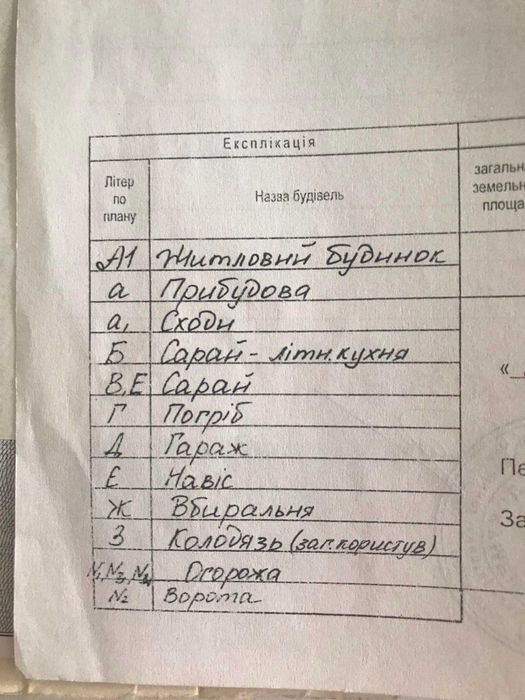 Експлікація
Літер по плану
Назва будівель
загальн
земельн
площа
А1 Житловий будинок
а Прибудова
а, Сходи
Б Сарай - літн. кухня
В,Е Сарай
Г Погріб
Д Гараж
Є Навіс
Ж Вбиральня
З Колодязь (заг. користув)
«_
Пе
За
Огорожа
№ Ворота